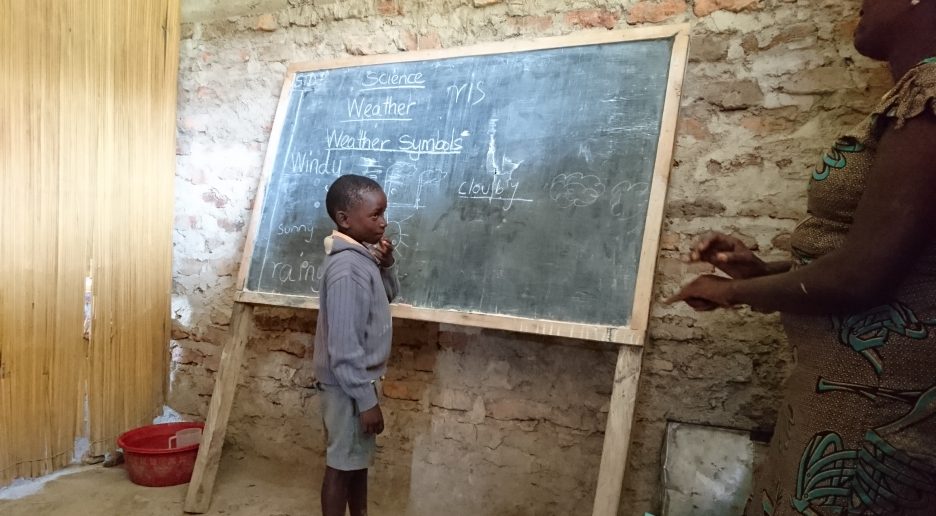 Science
Weather
Weather symbols
Windy
sunny
rainy